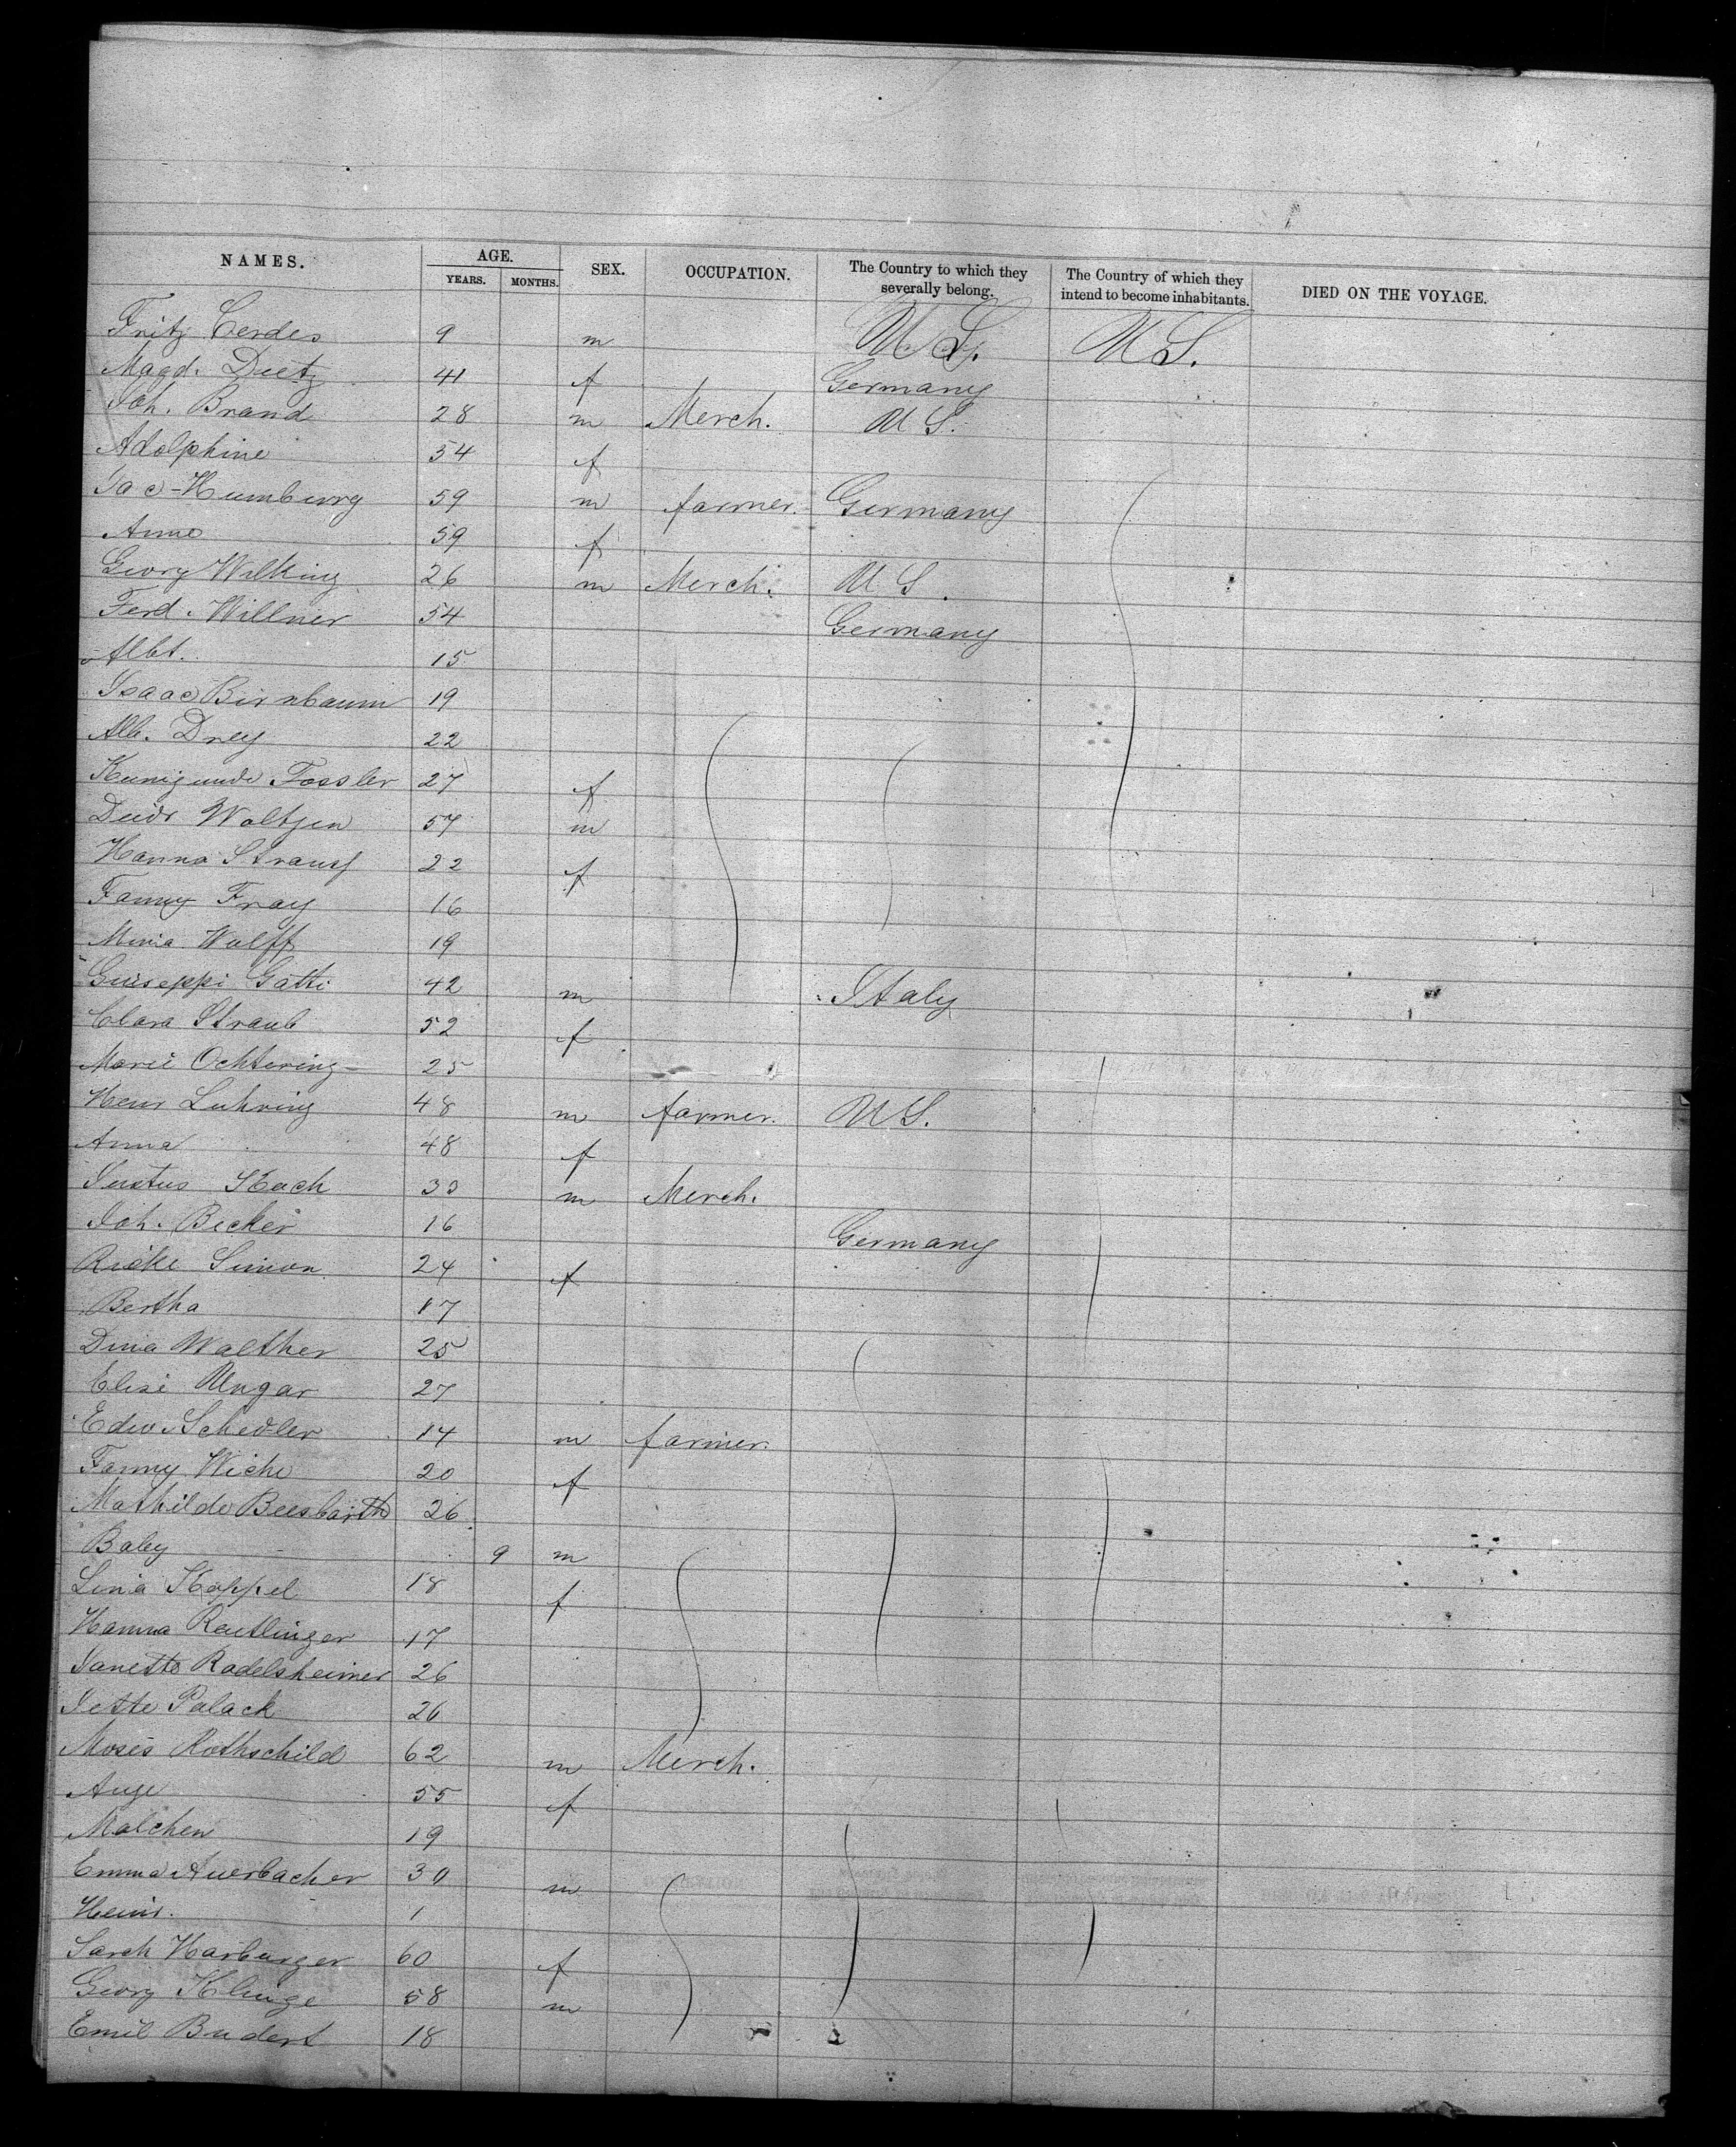 NAMES. AGE. SEX. OCCUPATION. The Country to which they severally belong. The Country of which they intend to become inhabitants. DIED ON THE VOYAGE.
YEARS. MONTHS.
Fritz Cerdes 9 m U S. U S.
Magd. Dietz 41 f Germany
Joh. Brand 28 m Merch. U S.
Adolphine 54 f
Jac Humburg 59 m farmer. Germany
Anna 59 f
Georg Wilking 26 m Merch. U S.
Ferd. Willner 54 Germany
Albt. 15
Isaac Birnbaum 19
Alb. Drey 22
Kunigunde Fossler 27 f
Diedr Woltjen 57 m
Hanna Strauss 22 f
Fanny Fray 16
Mina Wolff 19
Guiseppi Gatti 42 m Italy
Clara Straub 52 f
Marie Ochtering 25
Henr Luhring 48 m farmer. U S.
Anna 48 f
Justus Koch 33 m Merch.
Joh. Becker 16 Germany
Ricke Simon 24 f
Bertha 17
Dina Walther 25
Elise Ungar 27
Edw. Schedler 14 m farmer.
Fanny Wiche 20 f
Mathilde Beesbarth 26
Baby 9 m
Lina Koppel 18 f
Hanna Reutlinger 17
Janette Radelsheimer 26
Jette Polack 26
Moses Rothschild 62 m Merch.
55 f
Malchen 19
Emma Auerbacher 30 m
Heinr. 1
Sarch Harburger 60 f
Georg Klinge 58 m
Emil Budert 18